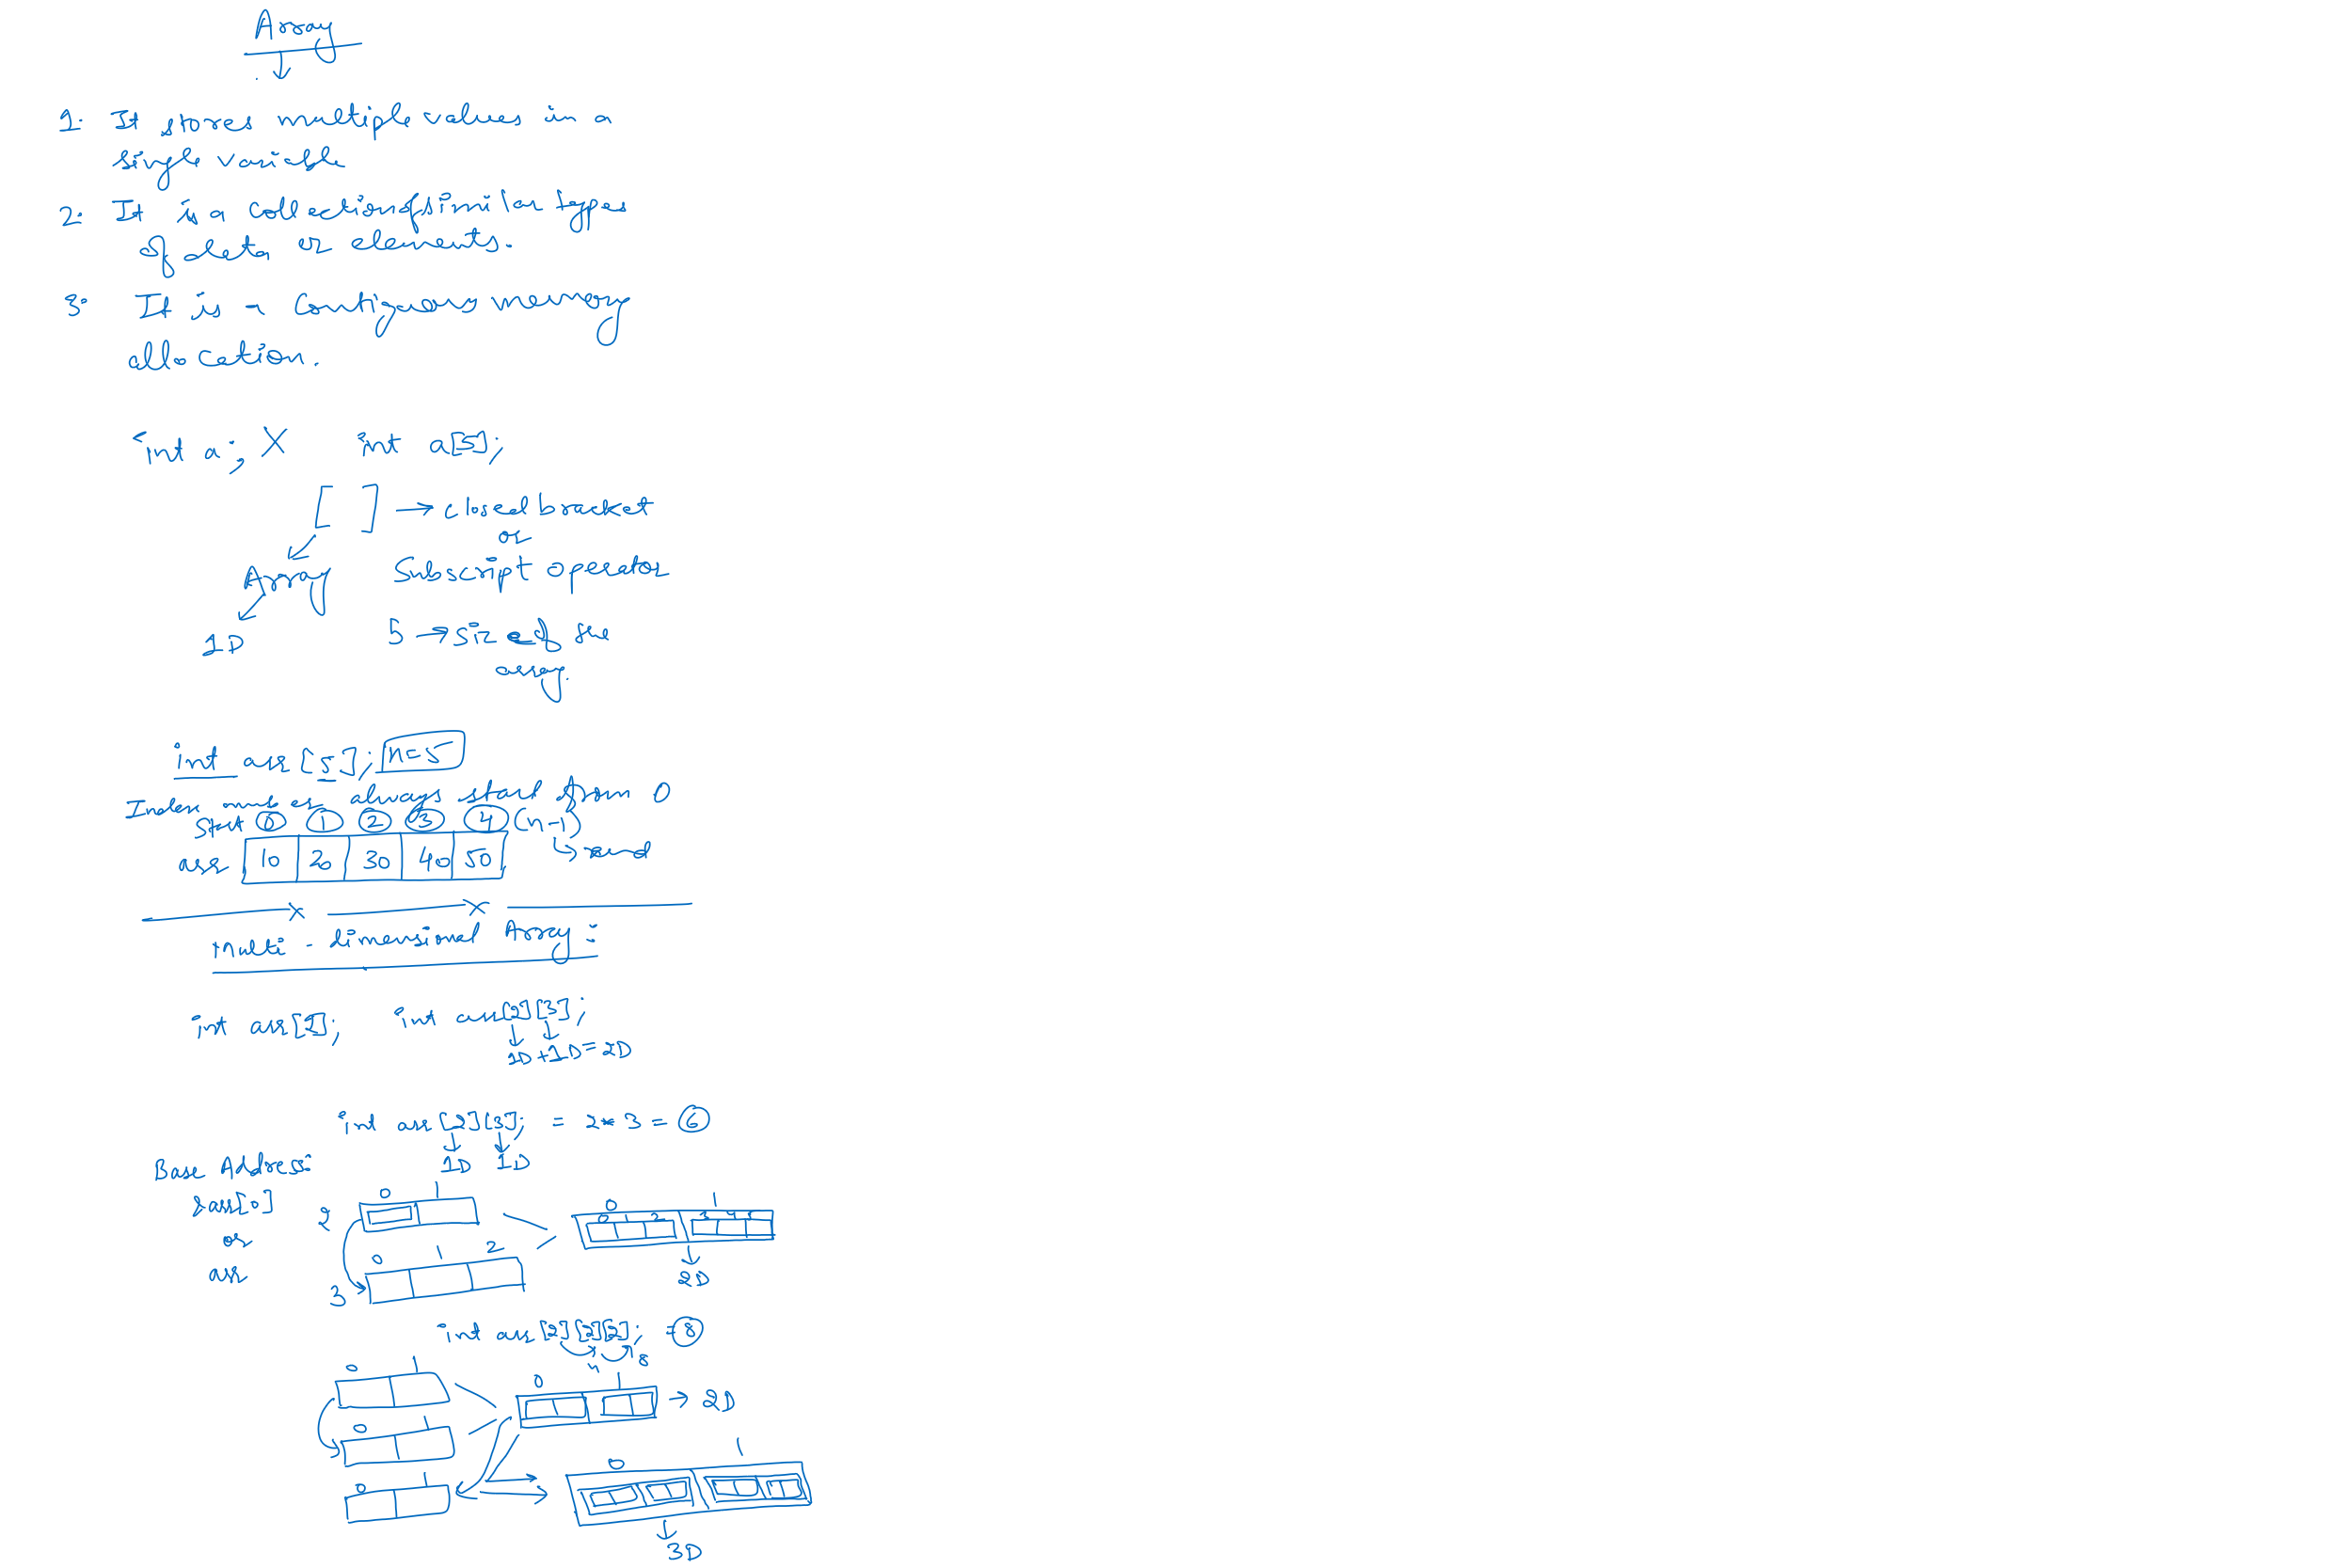 Array
1. It stores multiple values in a
single variable
2. It is a collection of similar types
of data or elements.
3. It is a contiguous memory
allocation.
int a; X int a[5];
[ ] → closed bracket
or
Array Subscript operator
1D 5 → size of the
array.
int arr[5]; n=5
Index number always start from 0
start 0 1 2 3 4 (n-1)
arr 10 20 30 40 50 → end
Multi-dimensional Array:
int arr[2]; int arr[2][3];
1D + 1D = 2D
int arr[2][3]; = 2*3 = 6
1D 1D
Base Address:
&arr[0]
or
arr
2 0 1
3 0 1 2
0 1
0 1 2 3 4 5
2D
int arr[2][2][2]; = 8
4 8
0 1
0 1
0 1
0 1 → 2D
0 1
3D